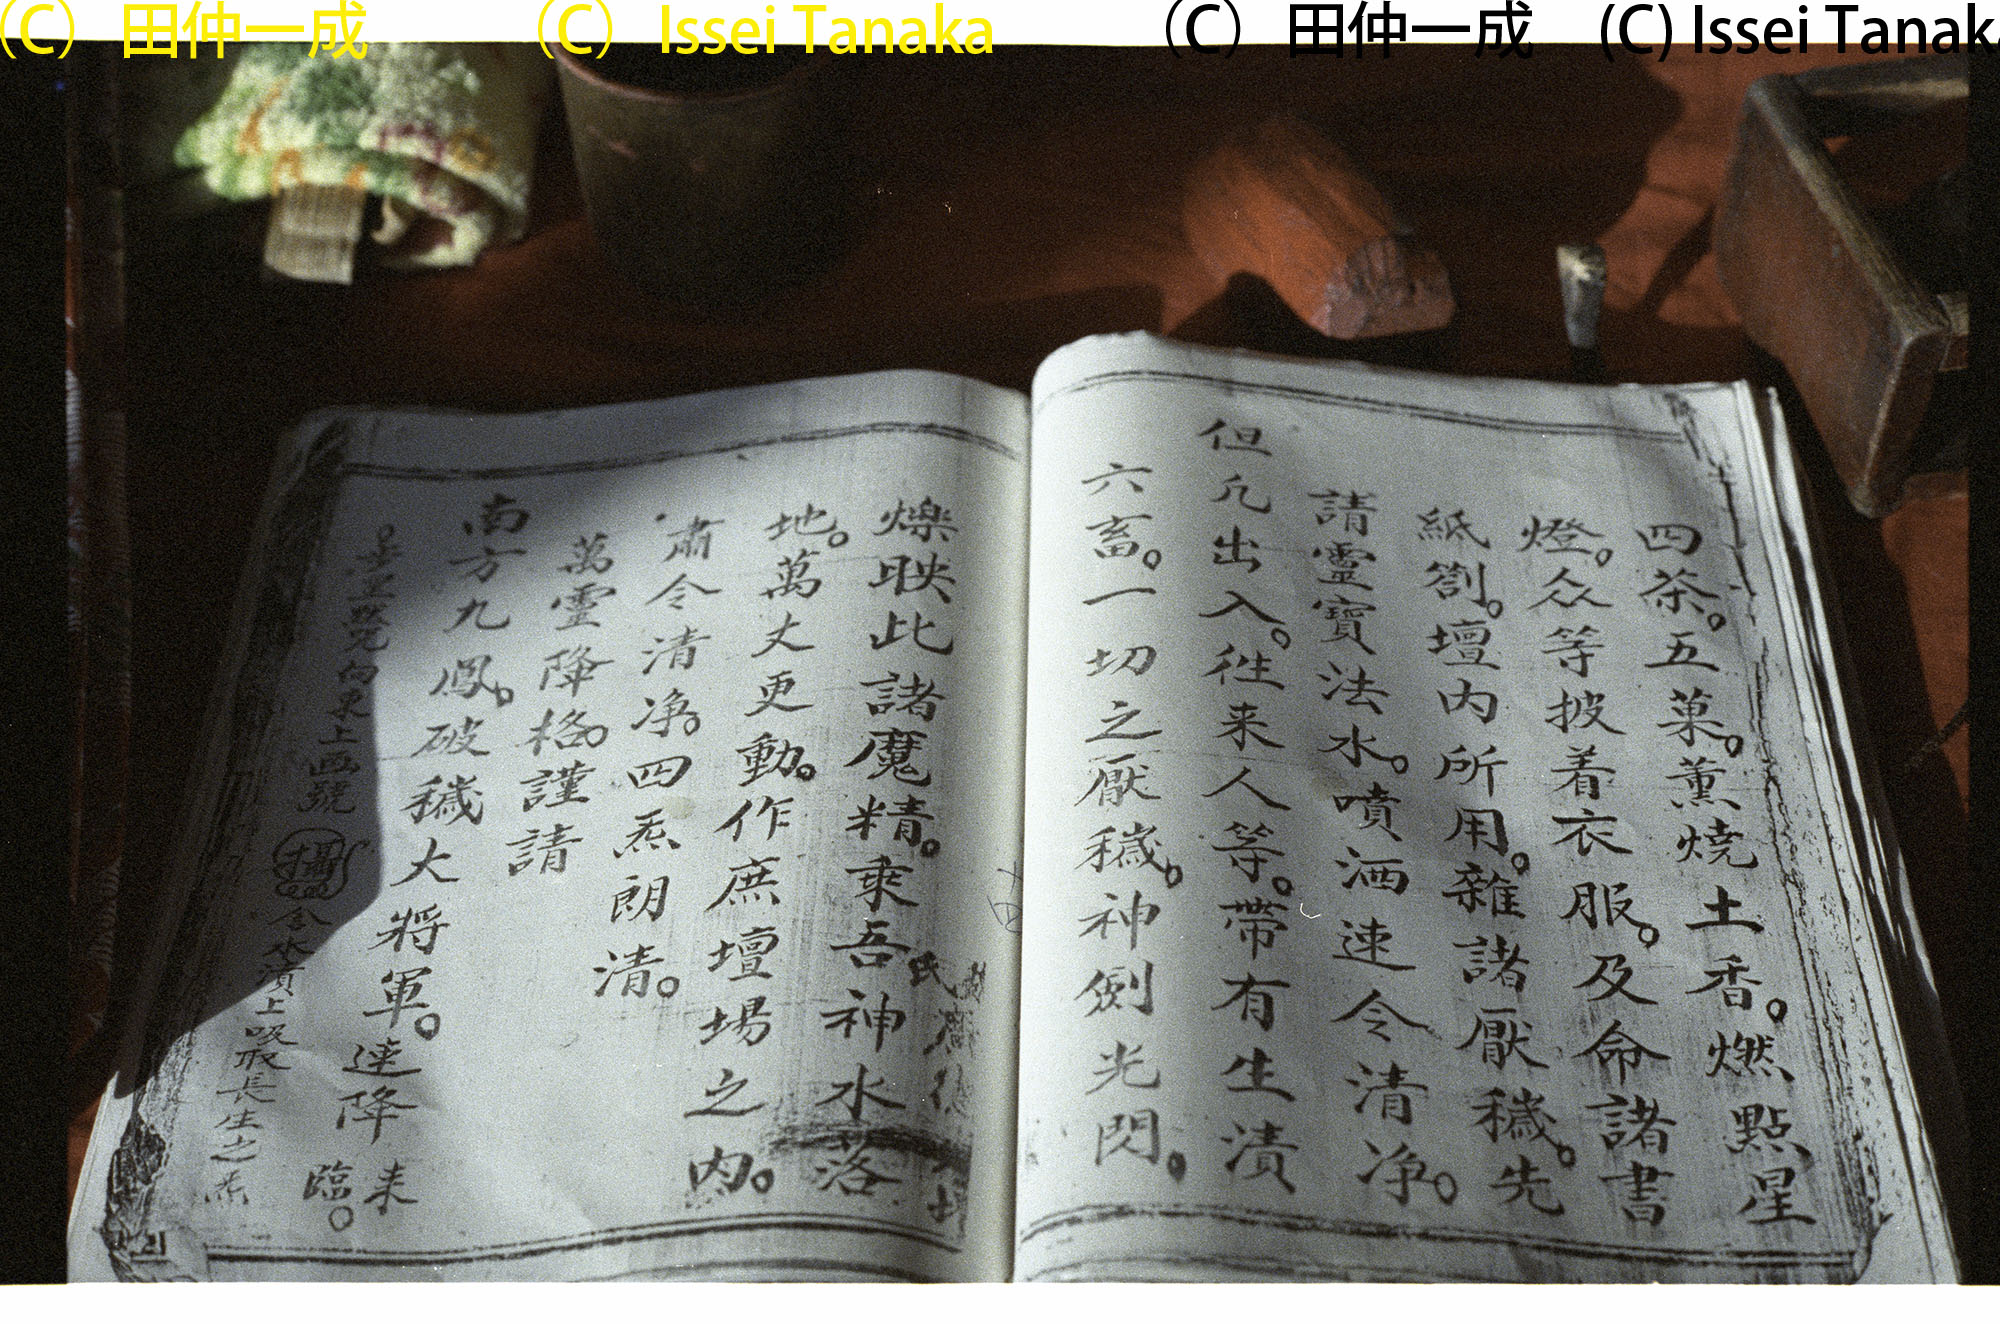 （C） 田仲一成 （C） Issei Tanaka （C） 田仲一成 (C) Issei Tanaka
四茶。五菓。薰燒土香。燃點星
燈。众等披着衣服。及命諸書
紙劄。壇内所用。雜諸厭穢。先
請靈寶法水。噴洒速令清净。
但凢出入。徃来人等。带有生漬
六畜。一切之厭穢。神劍光閃。
爍映此諸魔精。乘吾神水落
地。萬丈更動。作庶壇場之内。
肅令清净。四炁朗清。
萬靈降格。謹請
南方九鳳。破穢大將軍。速降来
臨。
默咒向東上画號
含水漬上吸取長生之炁
21